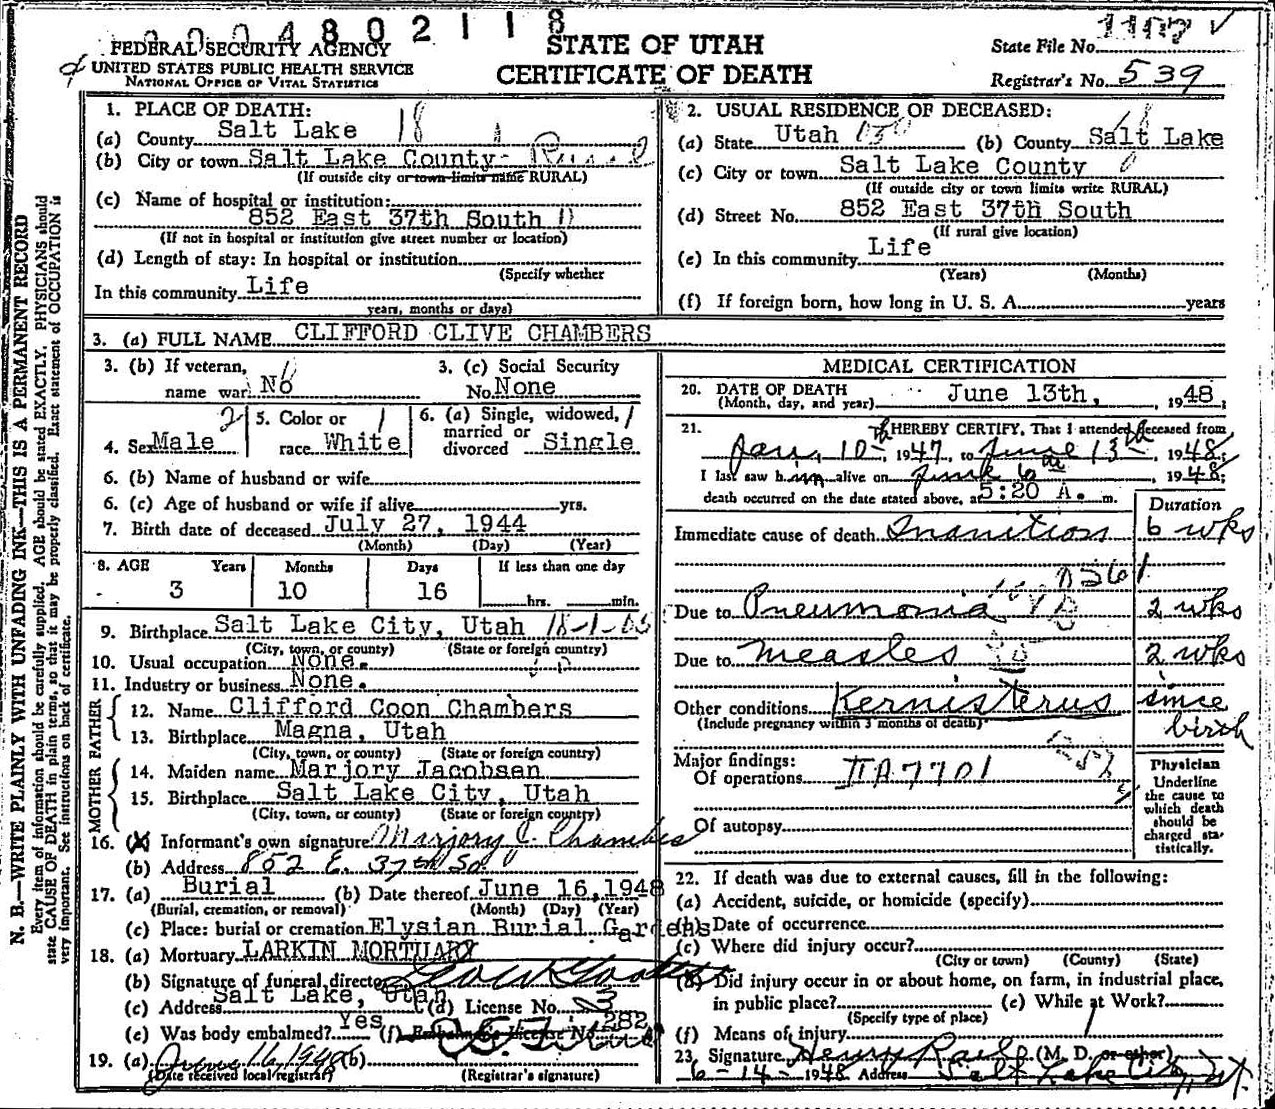 0 0 0 4 8 0 2 1 1 8
FEDERAL SECURITY AGENCY
UNITED STATES PUBLIC HEALTH SERVICE
NATIONAL OFFICE OF VITAL STATISTICS
STATE OF UTAH
CERTIFICATE OF DEATH
State File No.
Registrar's No. 539
N. B.—WRITE PLAINLY WITH UNFADING INK—THIS IS A PERMANENT RECORD
Every item of information should be carefully supplied. AGE should be stated EXACTLY. PHYSICIANS should
state CAUSE OF DEATH in plain terms, so that it may be properly classified. Exact statement of OCCUPATION is
very important. See instructions on back of certificate.
1. PLACE OF DEATH:
(a) County Salt Lake 18
(b) City or town Salt Lake County- Rural
(If outside city or town limits name RURAL)
(c) Name of hospital or institution:
852 East 37th South
(If not in hospital or institution give street number or location)
(d) Length of stay: In hospital or institution
(Specify whether
In this community Life
years, months or days)
2. USUAL RESIDENCE OF DECEASED:
(a) State Utah (b) County Salt Lake
(c) City or town Salt Lake County
(If outside city or town limits write RURAL)
(d) Street No. 852 East 37th South
(If rural give location)
(e) In this community Life
(Years) (Months)
(f) If foreign born, how long in U. S. A. years
3. (a) FULL NAME CLIFFORD CLIVE CHAMBERS
3. (b) If veteran, 3. (c) Social Security
name war No No. None
4. Sex Male 2 5. Color or race White 1 6. (a) Single, widowed, married or divorced Single 1
6. (b) Name of husband or wife
6. (c) Age of husband or wife if alive yrs.
7. Birth date of deceased July 27, 1944
(Month) (Day) (Year)
8. AGE Years Months Days If less than one day
3 10 16 hrs. min.
9. Birthplace Salt Lake City, Utah
(City, town, or county) (State or foreign country)
10. Usual occupation None.
11. Industry or business None.
FATHER
12. Name Clifford Coon Chambers
13. Birthplace Magna, Utah
(City, town, or county) (State or foreign country)
MOTHER
14. Maiden name Marjory Jacobsen
15. Birthplace Salt Lake City, Utah
(City, town, or county) (State or foreign country)
16. (X) Informant's own signature Marjory C. Chambers
(b) Address 852 E. 37th So.
17. (a) Burial (b) Date thereof June 16, 1948
(Burial, cremation, or removal) (Month) (Day) (Year)
(c) Place: burial or cremation Elysian Burial Gardens
18. (a) Mortuary LARKIN MORTUARY
(b) Signature of funeral director
(c) Address Salt Lake, Utah (d) License No. 3
(e) Was body embalmed? Yes (f) Embalmer's License No. 282
19. (a) June 16, 1948 (b)
(Date received local registrar) (Registrar's signature)
MEDICAL CERTIFICATION
20. DATE OF DEATH June 13th, 1948;
(Month, day, and year)
21. I HEREBY CERTIFY, That I attended deceased from
Jan, 10th, 1947, to June 13th, 1948;
I last saw him alive on June 6th, 1948;
death occurred on the date stated above, at 5:20 A. m.
Duration
Immediate cause of death Inanition 6 wks
Due to Pneumonia 2 wks
Due to Measles 2 wks
Other conditions Kernisterus since birth
(Include pregnancy within 3 months of death)
Major findings:
Of operations
Of autopsy
Physician
Underline the cause to which death should be charged statistically.
22. If death was due to external causes, fill in the following:
(a) Accident, suicide, or homicide (specify)
(b) Date of occurrence
(c) Where did injury occur?
(City or town) (County) (State)
(d) Did injury occur in or about home, on farm, in industrial place,
in public place? (e) While at Work?
(Specify type of place)
(f) Means of injury
23. Signature Henry (M. D. or other)
6-14-1948 Address Salt Lake City, Ut.